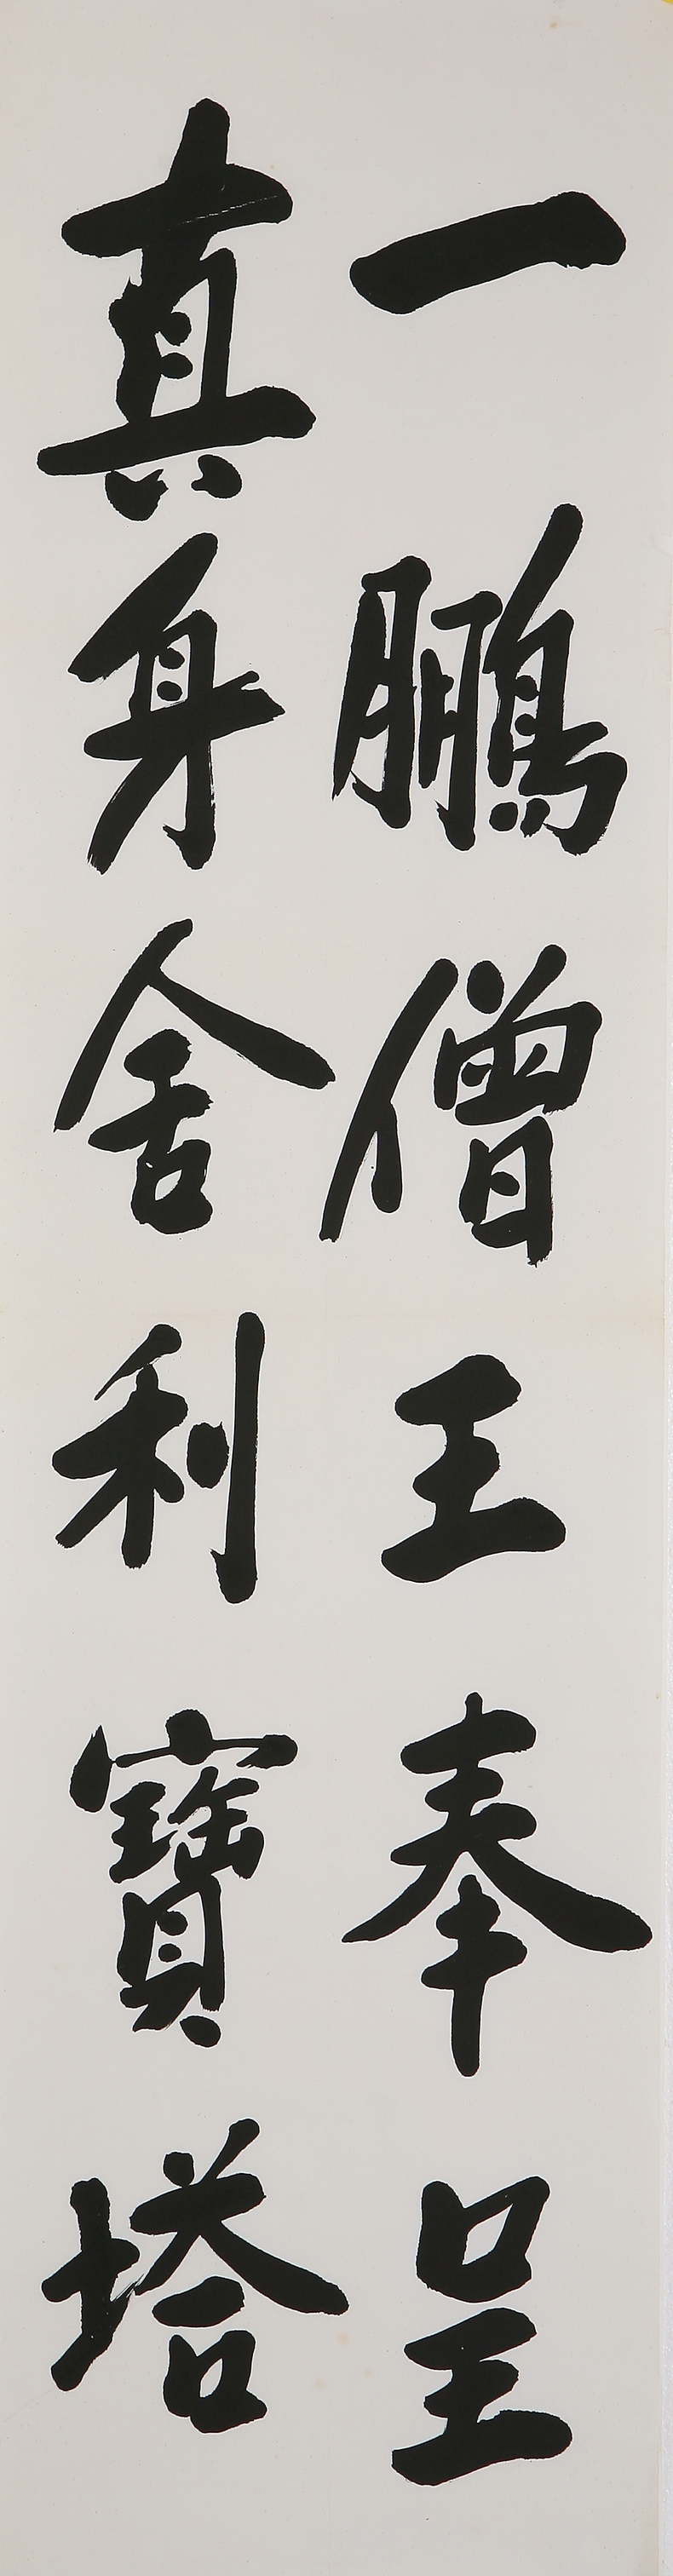 一鵬僧王奉呈
真身舍利寶塔